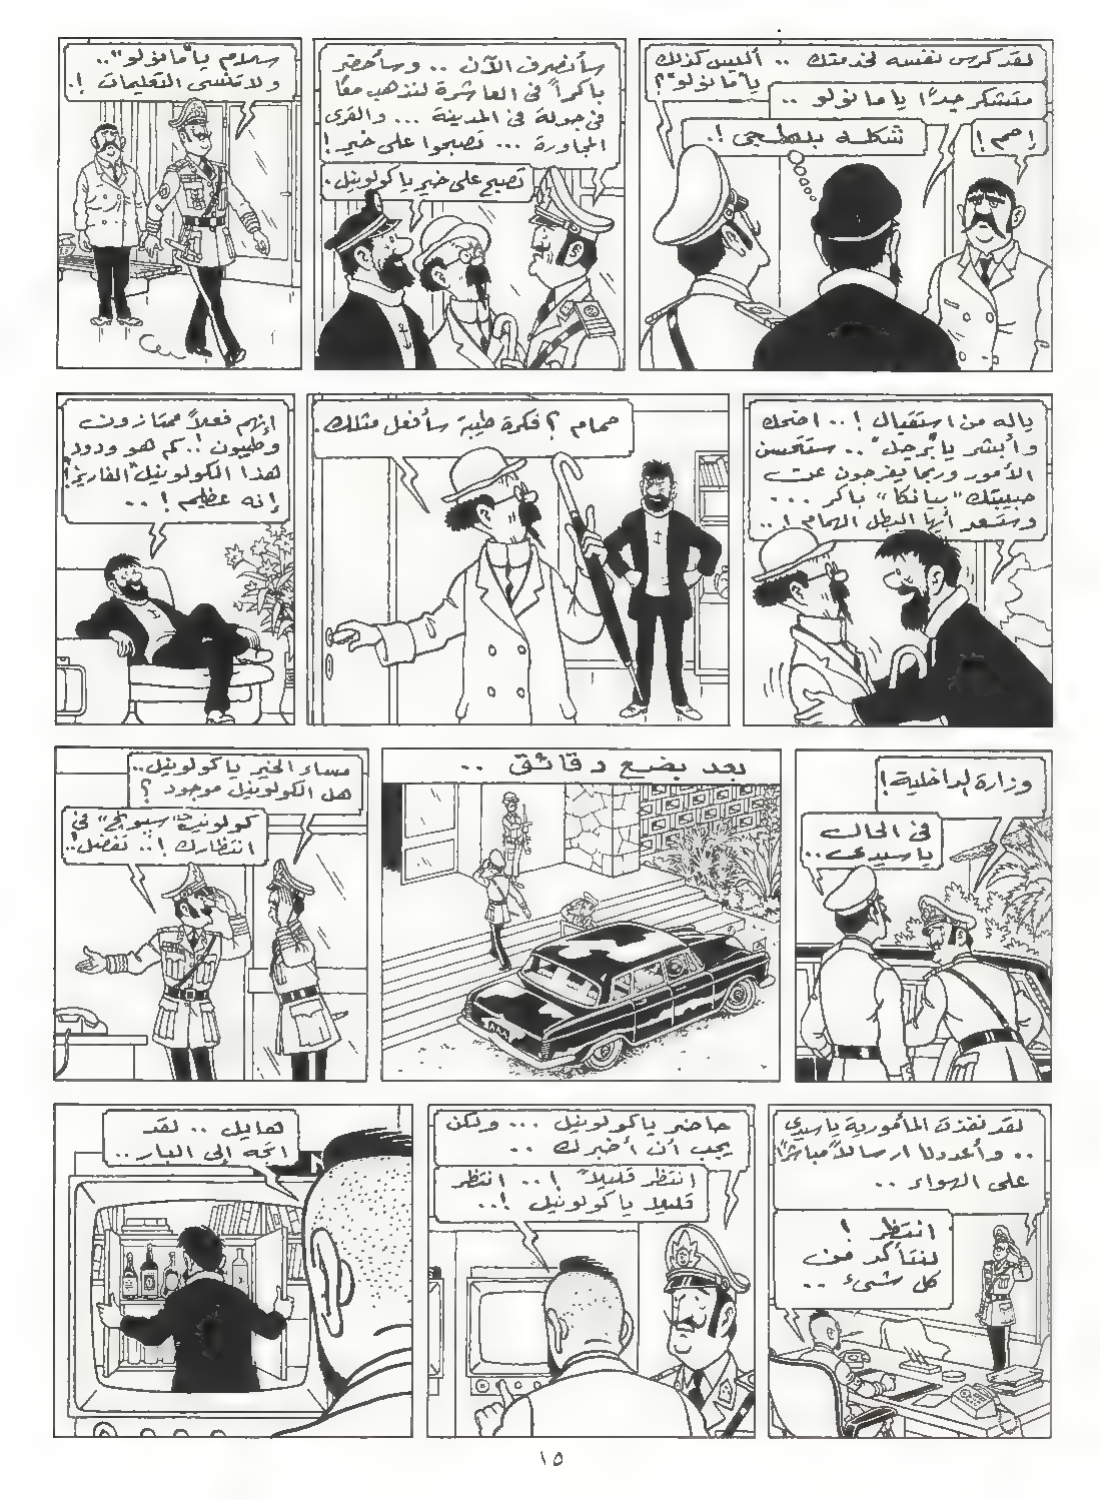 لقد كرس نفسه لخدمتك .. أليس كذلك
يا "مانولو"؟
متشكر جدًا يا مانولو ..
شكله بلطجي !.
إحم !
سأنصرف الآن .. وسأحضر
باكراً في العاشرة لنذهب معًا
في جولة في المدينة ... والقرى
المجاورة ... تصبحوا على خير !
تصبح على خير يا كولونيل .
سلام يا "مانولو" ..
ولا تنسى التعليمات !.
ياله من استقبال !.. اضحك
وأبشر يا "برجل" .. ستتحسن
الأمور وربما يفرجون عن
حبيبتك "بيانكا" باكر ...
وستسعد أيها البطل الهمام !..
حمام ؟ فكرة طيبة سأفعل مثلك .
إنهم فعلاً ممتازون
وطيبون !.. كم هو ودود
هذا الكولونيل "الفاريز" !
إنه عظيم !..
وزارة الداخلية !
في الحال
يا سيدى ..
بعد بضع دقائق ..
مساء الخير يا كولونيل ..
هل الكولونيل موجود ؟
كولونيل "سبونج" في
انتظارك !.. تفضل !.
لقد نفذت المأمورية يا سيدي
.. وأعددنا ارسالاً مباشرًا
على الهواء ..
انتظر !
لنتأكد من
كل شيء ..
حاضر يا كولونيل ... ولكن
يجب أن أخبرك ..
انتظر قليلاً !.. انتظر
قليلا يا كولونيل !..
هايل .. لقد
اتجه إلى البار ..
١٥